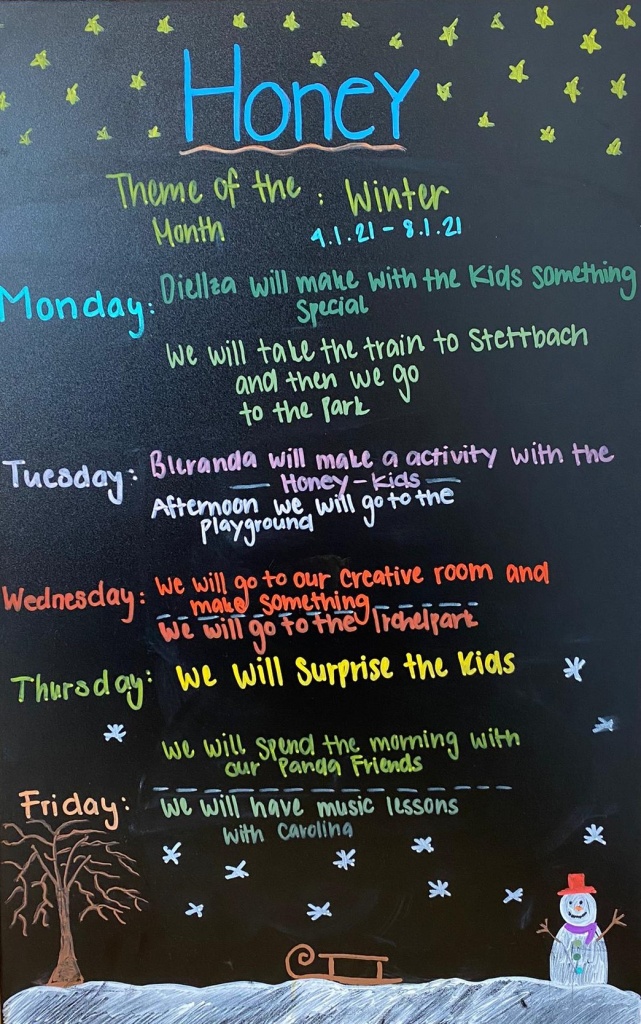 Honey
Theme of the : Winter
Month 4.1.21 - 8.1.21
Monday: Diellza will make with the Kids something
special
We will take the train to Stettbach
and then we go
to the Park
Tuesday: Bleranda will make a activity with the
Honey-Kids
Afternoon we will go to the
playground
Wednesday: We will go to our Creative room and
make something
We will go to the Irchelpark
Thursday: We will Surprise the Kids
We will spend the morning with
our Panda Friends
Friday: We will have music lessons
with Carolina